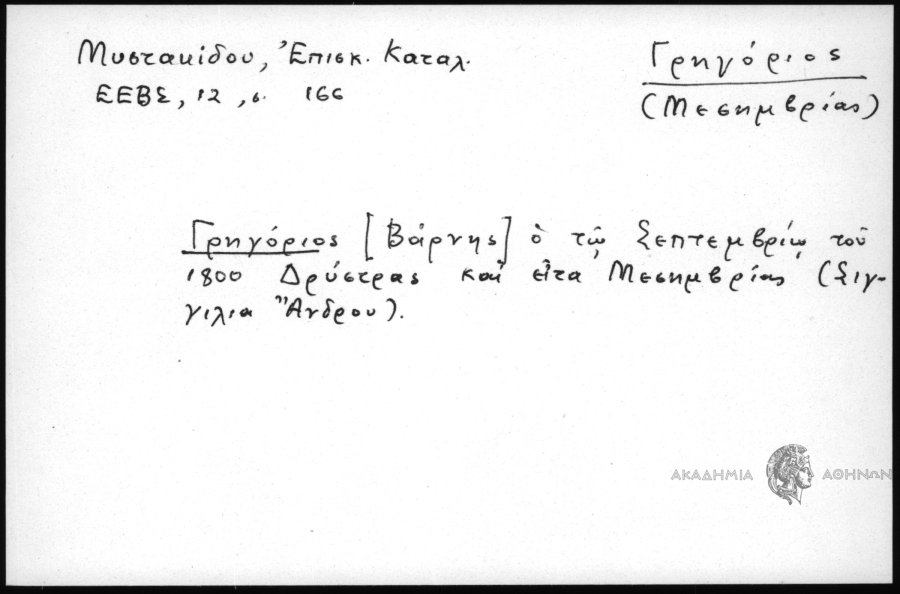 Μυστακίδου, Ἐπισκ. Καταλ.
ΕΕΒΣ, 12, σ. 166
Γρηγόριος
(Μεσημβρίας)
Γρηγόριος [Βάρνης] ὁ τῷ Σεπτεμβρίῳ τοῦ
1800 Δρύστρας καὶ εἶτα Μεσημβρίας (Σιγ-
γιλια Ἄνδρου).
ΑΚΑΔΗΜΙΑ ΑΘΗΝΩΝ